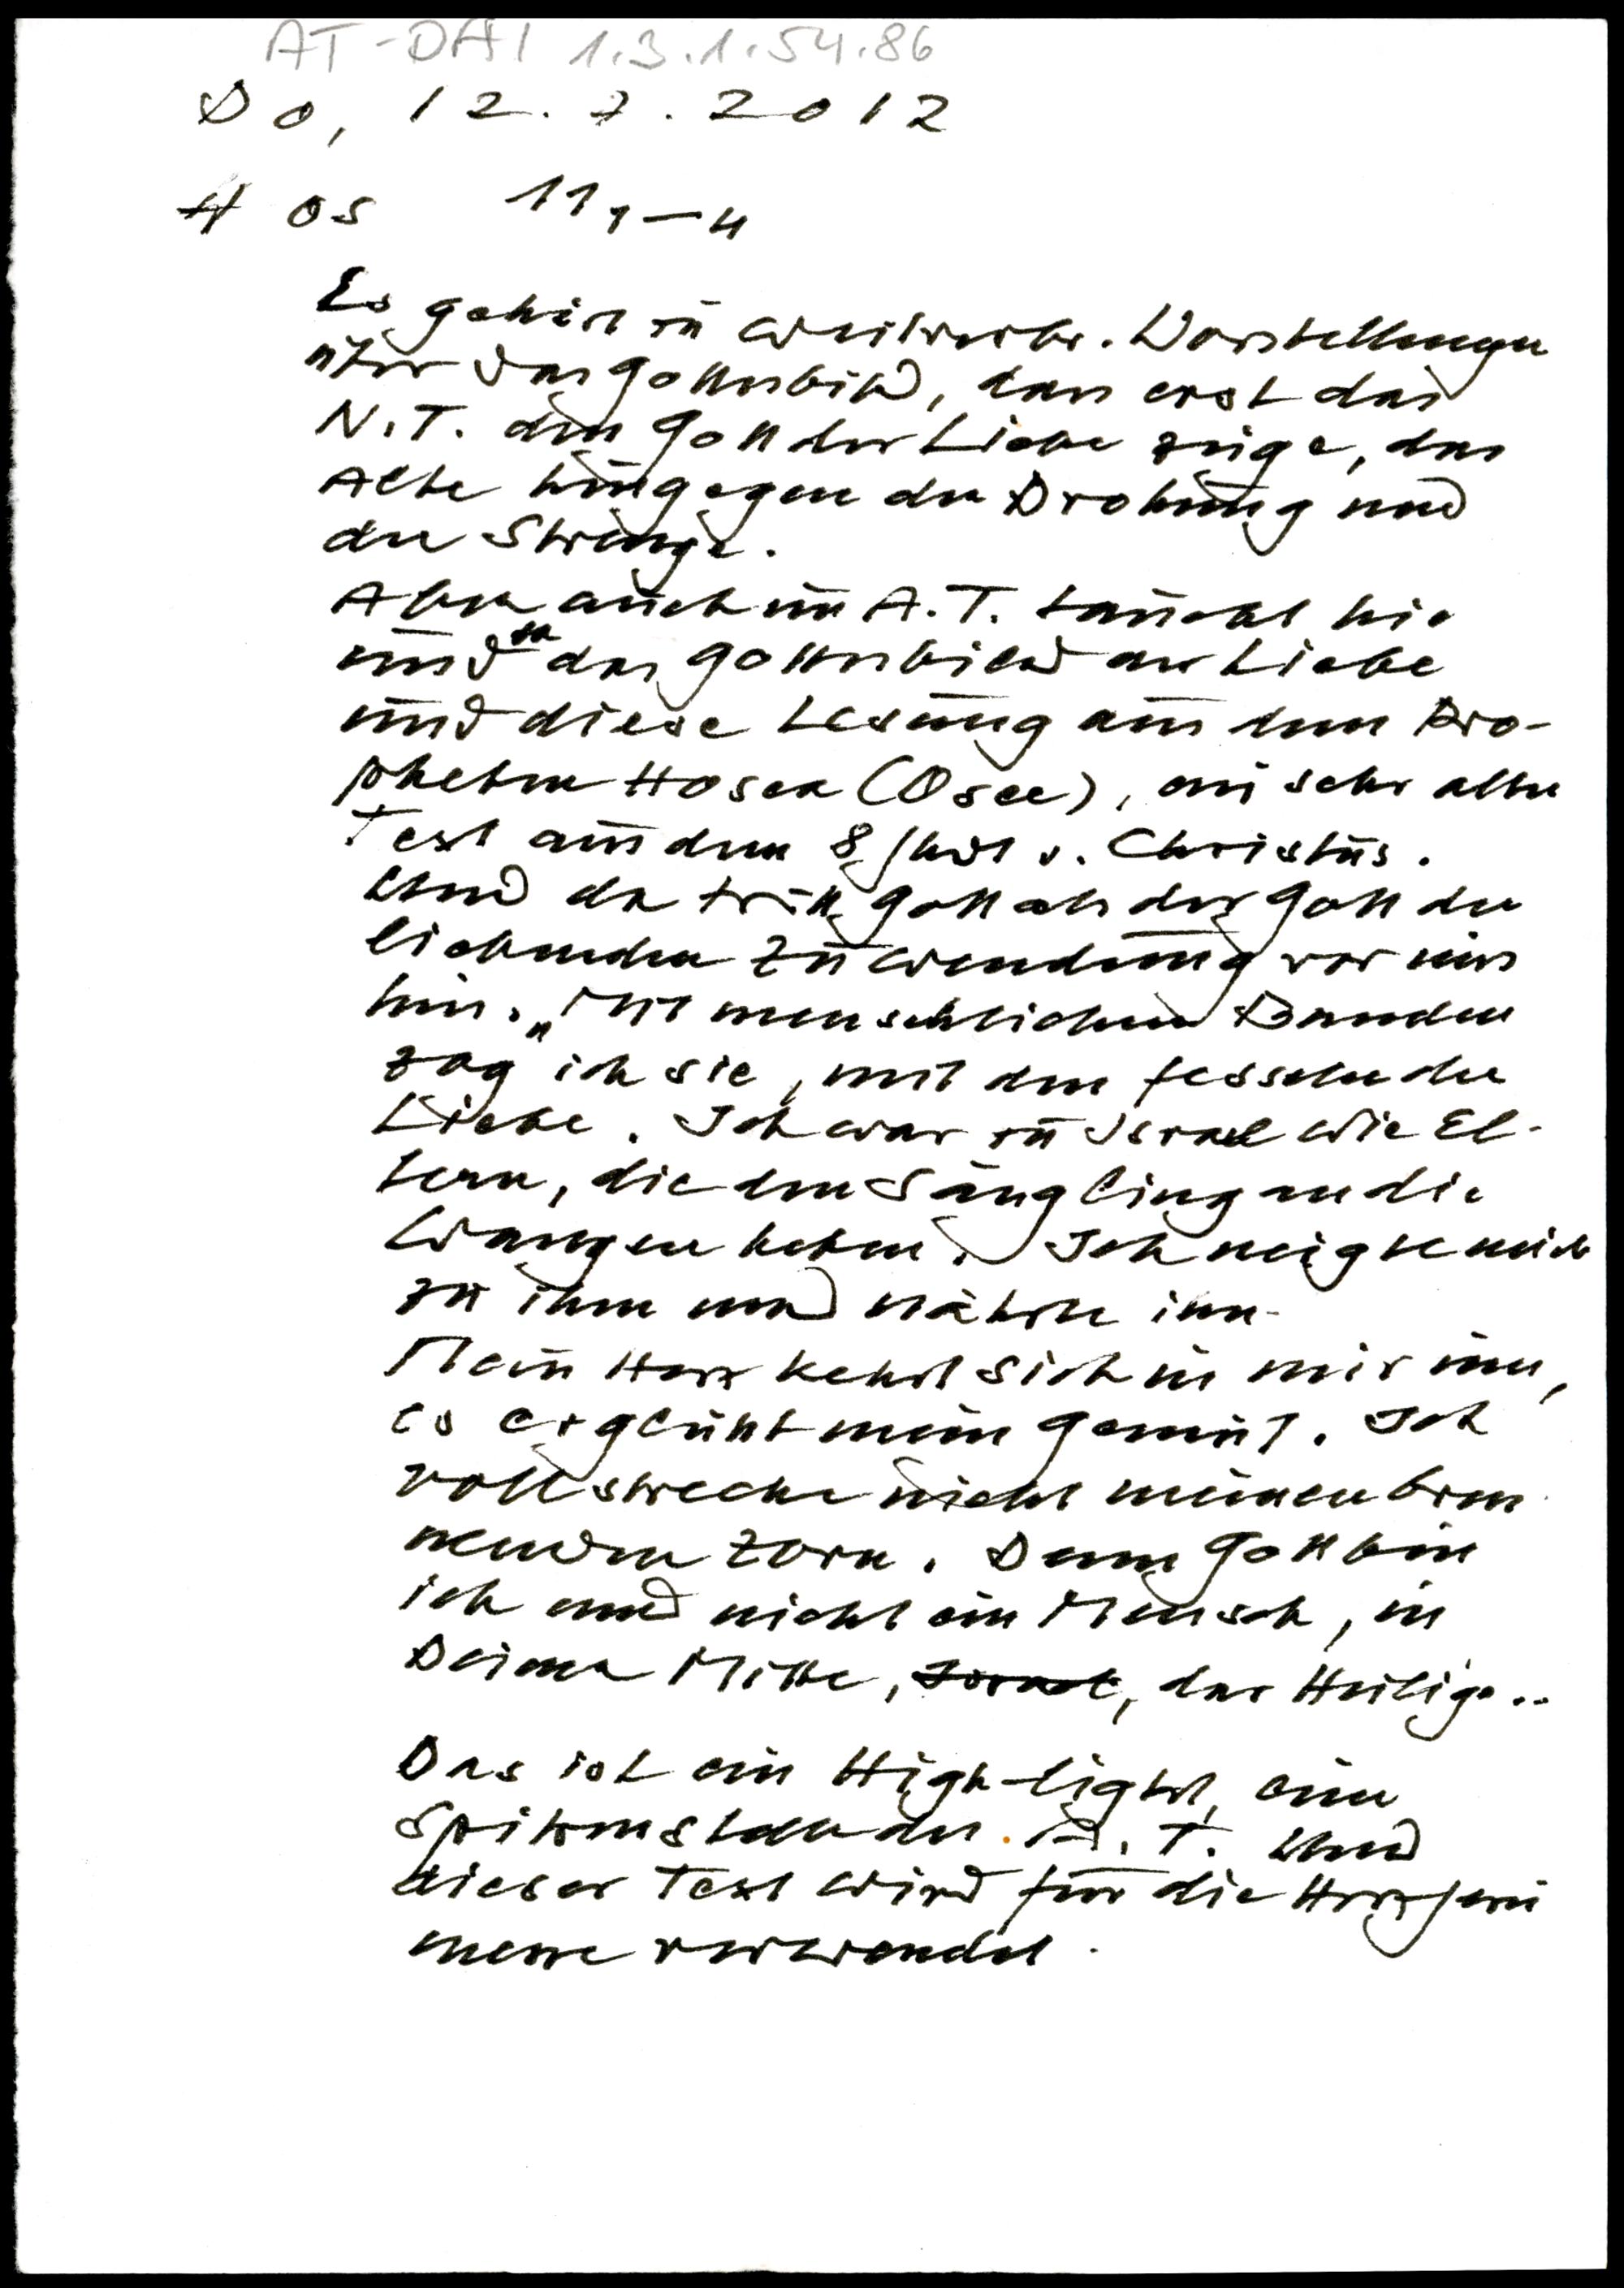 AT-DAI 1.3.1.54.86
Do, 12.7.2012
Hos 11, 1–4
Es gehört zu weitverbr. Vorstellungen
über das Gottesbild, dass erst das
N.T. den Gott der Liebe zeige, das
Alte hingegen der Drohung und
der Strenge.
Aber auch im A.T. taucht hie
und da das Gottesbild der Liebe
und diese Lesung aus dem Pro-
pheten Hosea (Osee), ein sehr alter
Text aus dem 8. Jhdt v. Christus.
Und da tritt Gott als der Gott der
liebenden Zuwendung vor uns
hin. „Mit menschlichen Banden
zog ich sie, mit den Fesseln der
Liebe. Ich war zu Israel wie El-
tern, die den Säugling an die
Wangen heben. Ich neigte mich
zu ihm und nährte ihn.
Mein Herz kehrt sich in mir um,
es erglüht mein Gemüt. Ich
vollstrecke nicht meinen bren
nenden Zorn. Denn Gott bin
ich und nicht ein Mensch, in
Deiner Mitte, Israel, der Heilige..
Das ist ein High-light, eine
Spitzenstelle des A.T. Und
dieser Text wird für die Herz Jesu
messe verwendet.